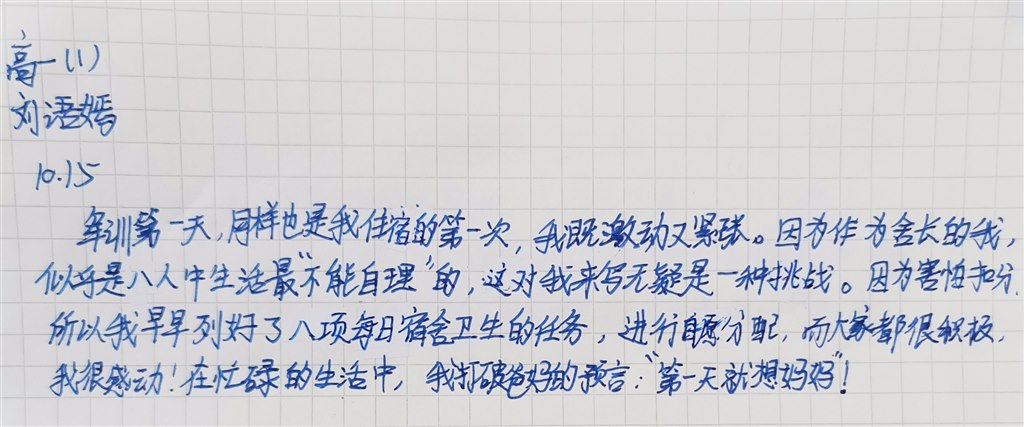 高一(1)
刘语嫣
10.15
军训第一天,同样也是我住宿的第一次,我既激动又紧张。因为作为舍长的我,
似乎是八人中生活最"不能自理"的,这对我来写无疑是一种挑战。因为害怕扣分,
所以我早早列好了八项每日宿舍卫生的任务,进行自愿分配,而大家都很积极,
我很感动!在忙碌的生活中,我打破爸妈的预言:"第一天就想妈妈"!